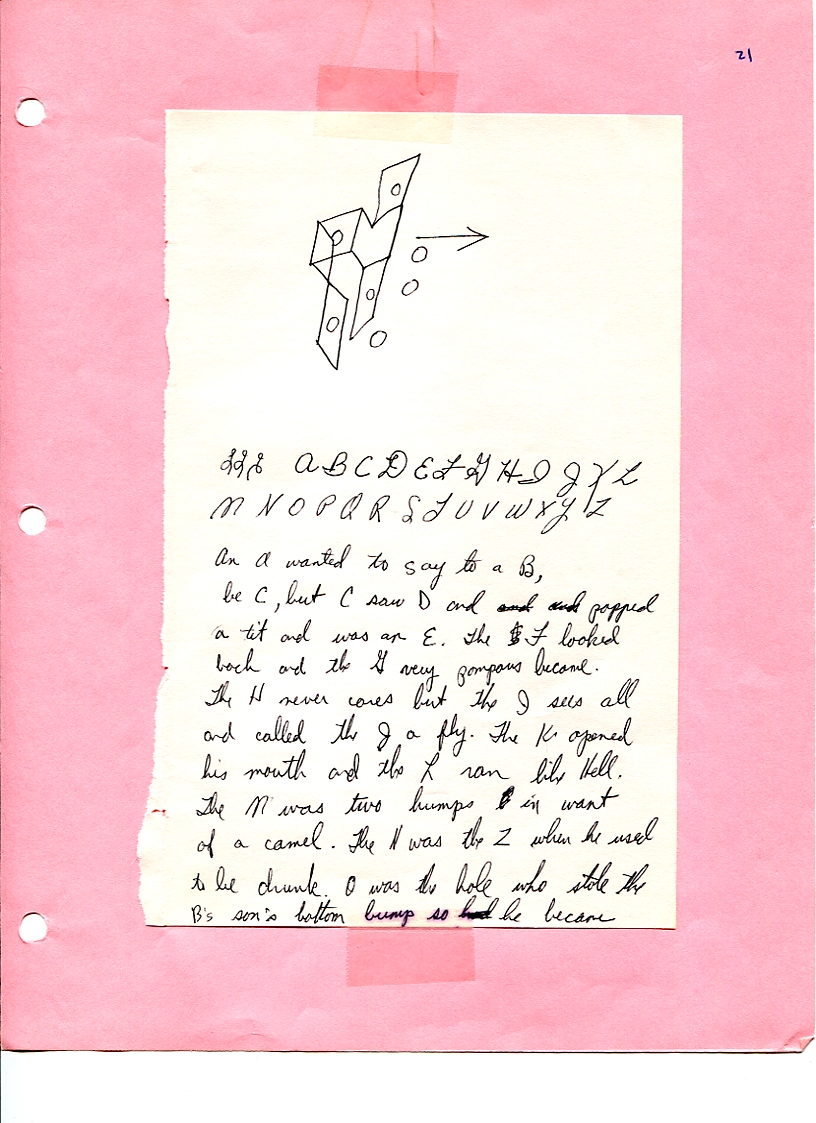 21
A B C D E F G H I J K L
M N O P Q R S T U V W X Y Z
An A wanted to say to a B,
be C, but C saw D and and and popped
a tit and was an E. The F looked
back and the G very pompous became.
The H never cares but the I sees all
and called the J a fly. The K opened
his mouth and the L ran like Hell.
The M was two humps in want
of a camel. The N was the Z when he used
to be drunk. O was the hole who stole the
B's son's bottom bump so he became